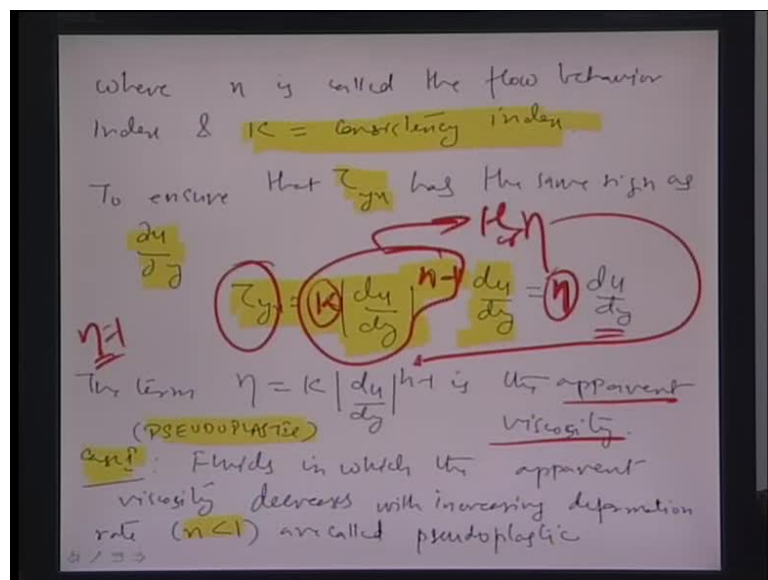 where n is called the flow behavior
Index & K = consistency index
To ensure that τyx has the same sign as
∂u/∂y
τyx = K |du/dy|^n-1 du/dy = η du/dy
n=1
The term η = K |du/dy|^n-1 is the apparent
(PSEUDOPLASTIC) viscosity.
Case I : Fluids in which the apparent
viscosity decreases with increasing deformation
rate (n<1) are called pseudoplastic